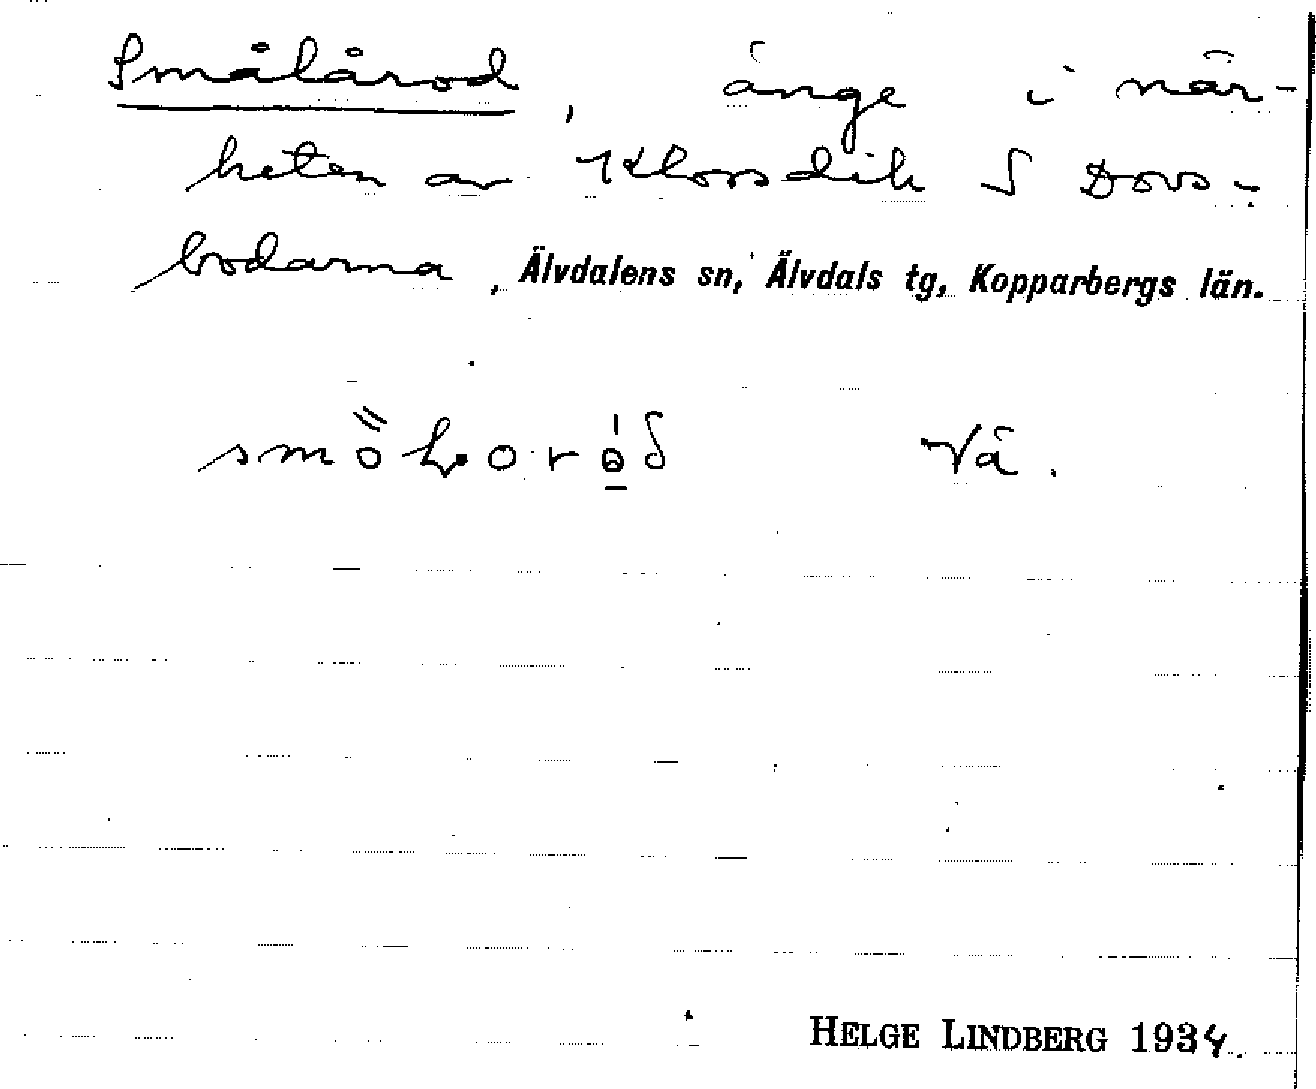 Smålårod, änge i när-
heten av Klossdik S Dovs-
bodarna, Älvdalens sn, Älvdals tg, Kopparbergs län.
Vä.
HELGE LINDBERG 1934.